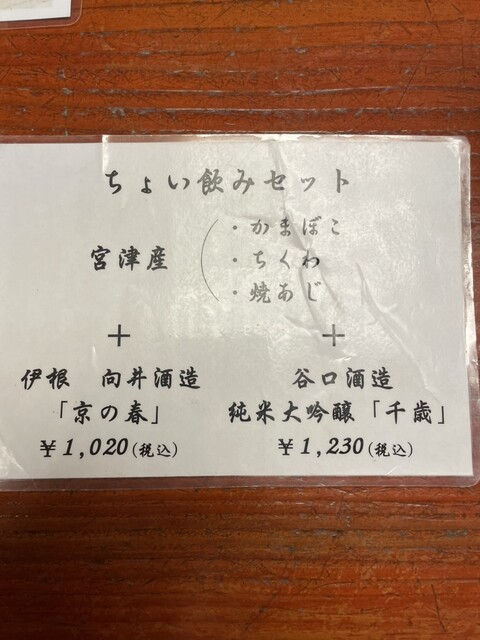 ちょい飲みセット
・かまぼこ
宮津産 ・ちくわ
・焼あじ
＋ ＋
伊根 向井酒造 谷口酒造
「京の春」 純米大吟醸「千歳」
￥1,020(税込) ￥1,230(税込)